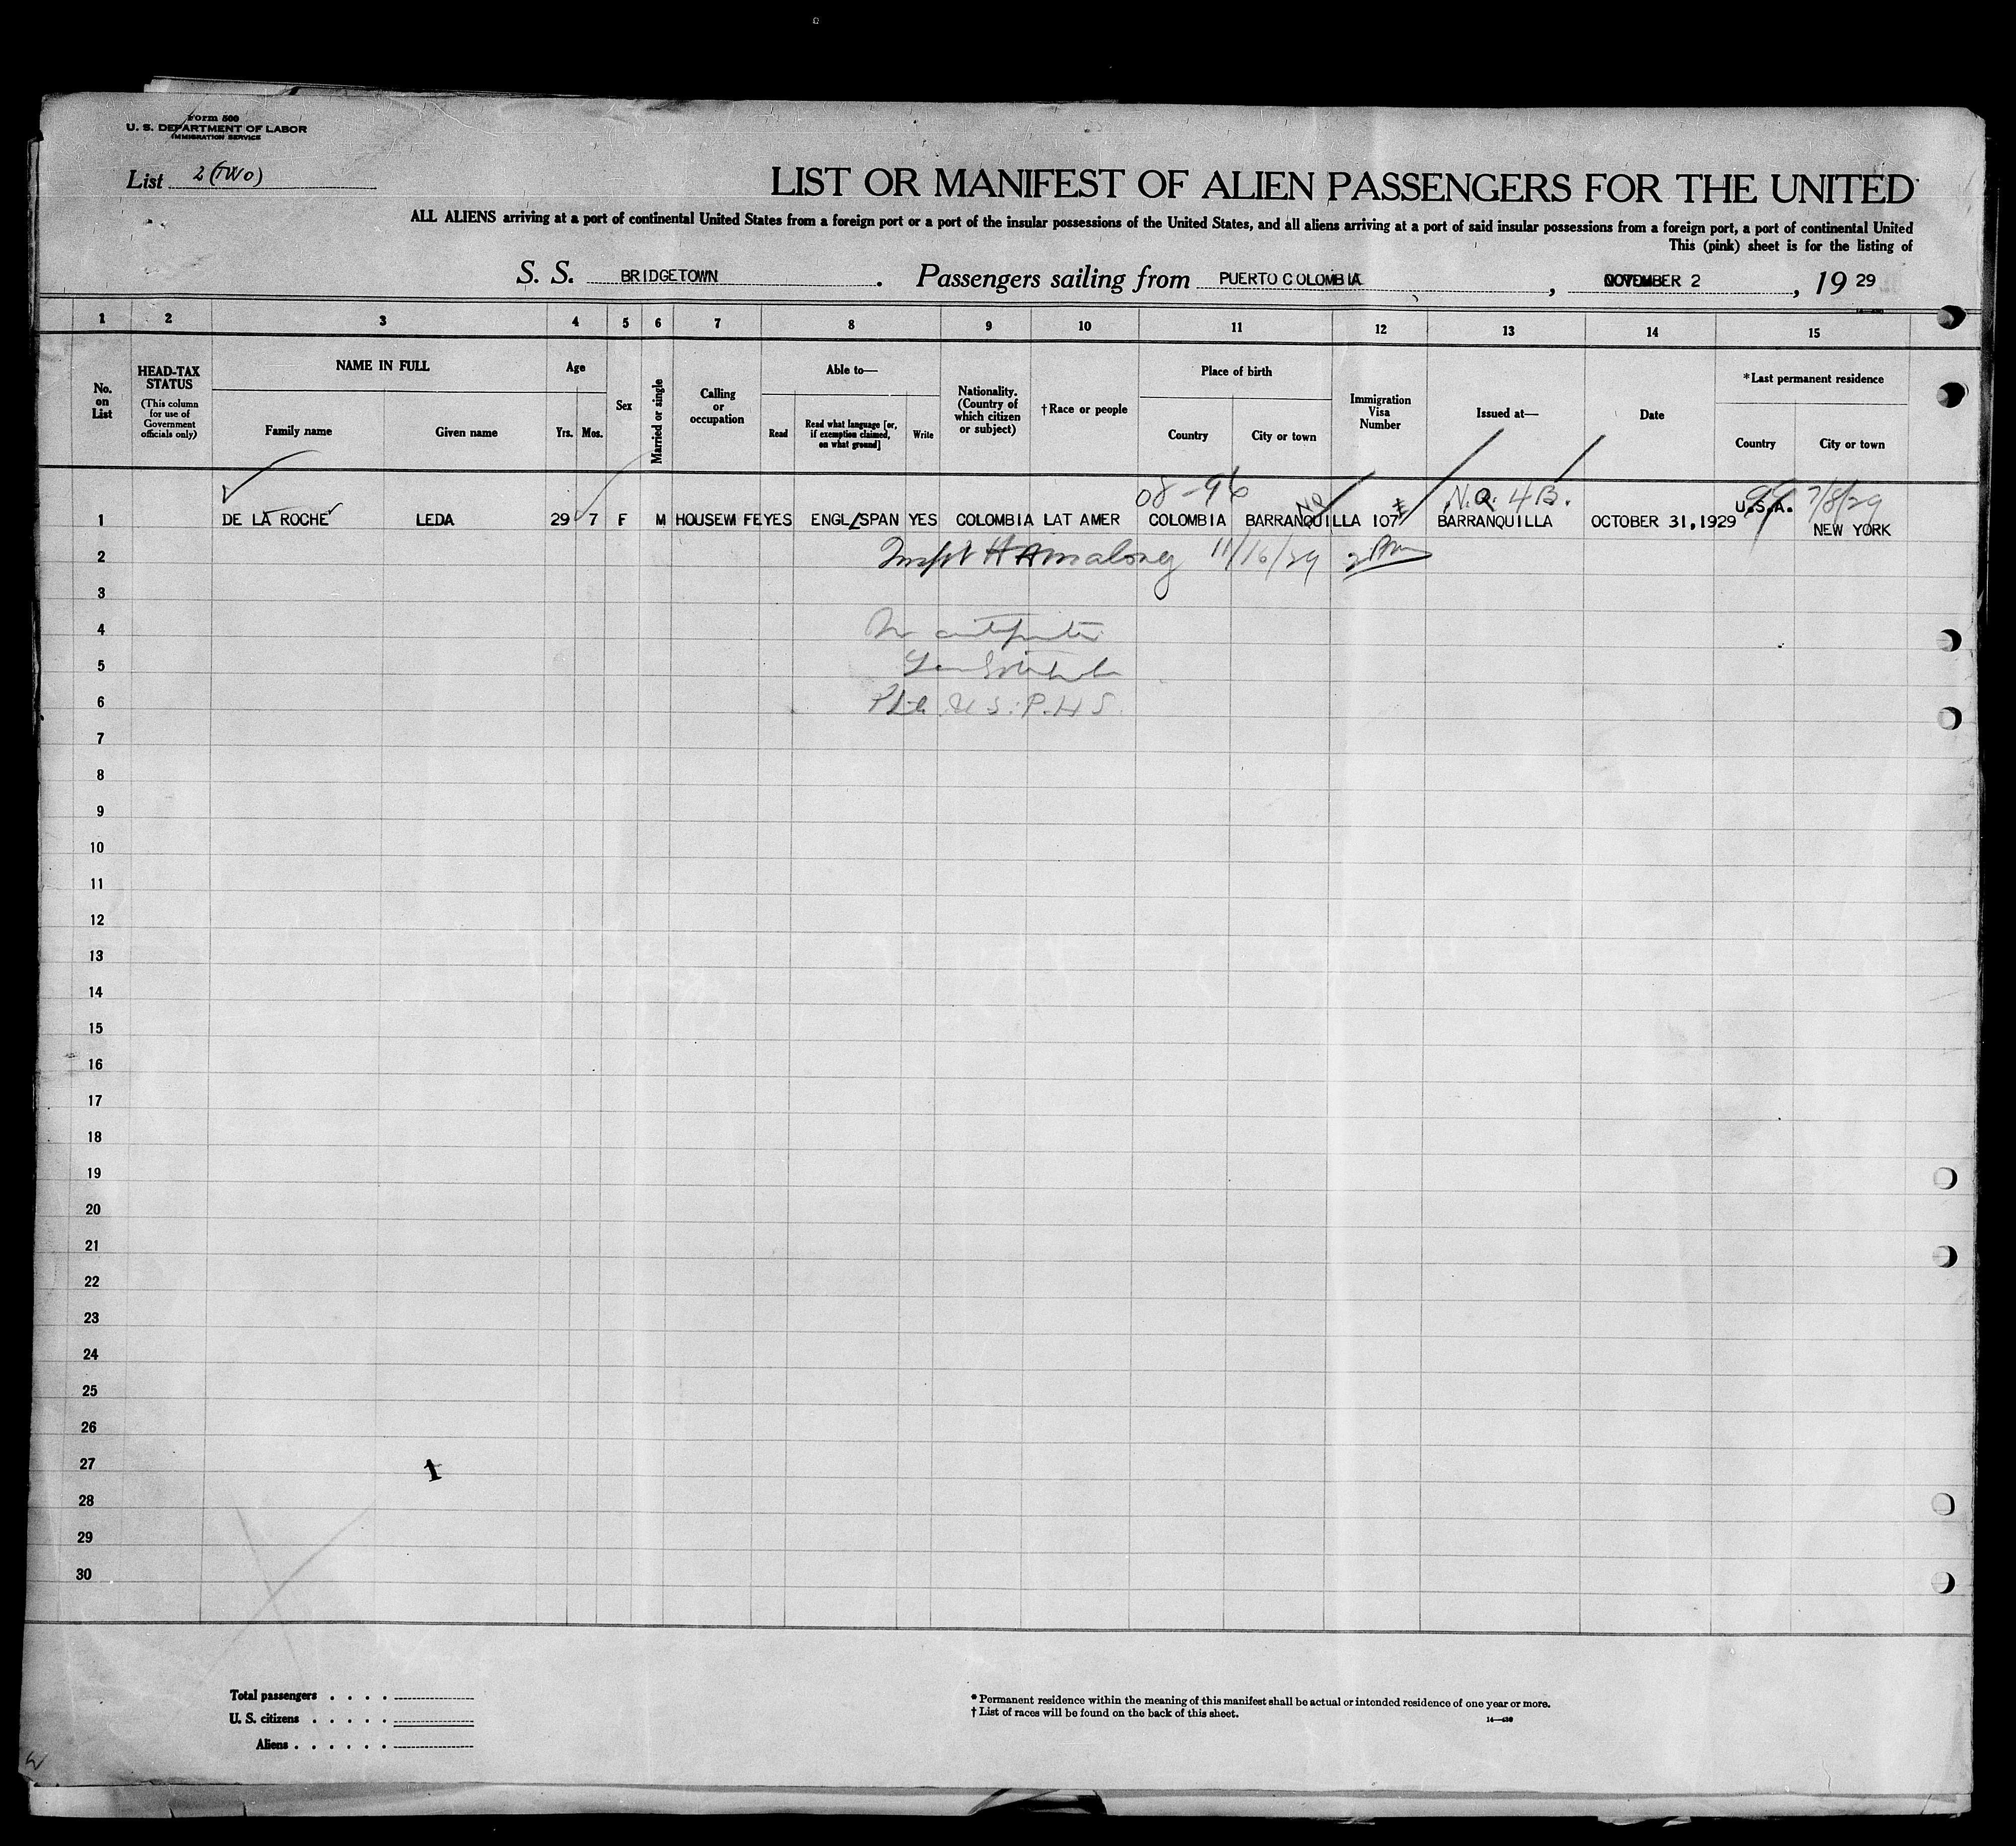 Form 500
U. S. DEPARTMENT OF LABOR
IMMIGRATION SERVICE
List 2 (TWO)
LIST OR MANIFEST OF ALIEN PASSENGERS FOR THE UNITED
ALL ALIENS arriving at a port of continental United States from a foreign port or a port of the insular possessions of the United States, and all aliens arriving at a port of said insular possessions from a foreign port, a port of continental United
This (pink) sheet is for the listing of
S. S. BRIDGETOWN . Passengers sailing from PUERTO COLOMBIA , NOVEMBER 2 , 19 29
1 2 3 4 5 6 7 8 9 10 11 12 13 14 15
No. on List
HEAD-TAX STATUS
(This column for use of Government officials only)
NAME IN FULL
Family name
Given name
Age
Yrs. Mos.
Sex
Married or single
Calling or occupation
Able to—
Read
Read what language [or, if exemption claimed, on what ground]
Write
Nationality. (Country of which citizen or subject)
† Race or people
Place of birth
Country
City or town
Immigration Visa Number
Issued at—
Date
* Last permanent residence
Country
City or town
08-96 N.Q. 4B. 99 7/8/29
1 DE LA ROCHE LEDA 29 7 F M HOUSEWIFE YES ENGL/SPAN YES COLOMBIA LAT AMER COLOMBIA BARRANQUILLA 107 BARRANQUILLA OCTOBER 31,1929 U.S.A. NEW YORK
2 11/16/29
3
4
5
6 U.S.P.H.S.
7
8
9
10
11
12
13
14
15
16
17
18
19
20
21
22
23
24
25
26
27 1
28
29
30
Total passengers . . . .
U. S. citizens . . . . .
Aliens . . . . . .
* Permanent residence within the meaning of this manifest shall be actual or intended residence of one year or more.
† List of races will be found on the back of this sheet.
14—430